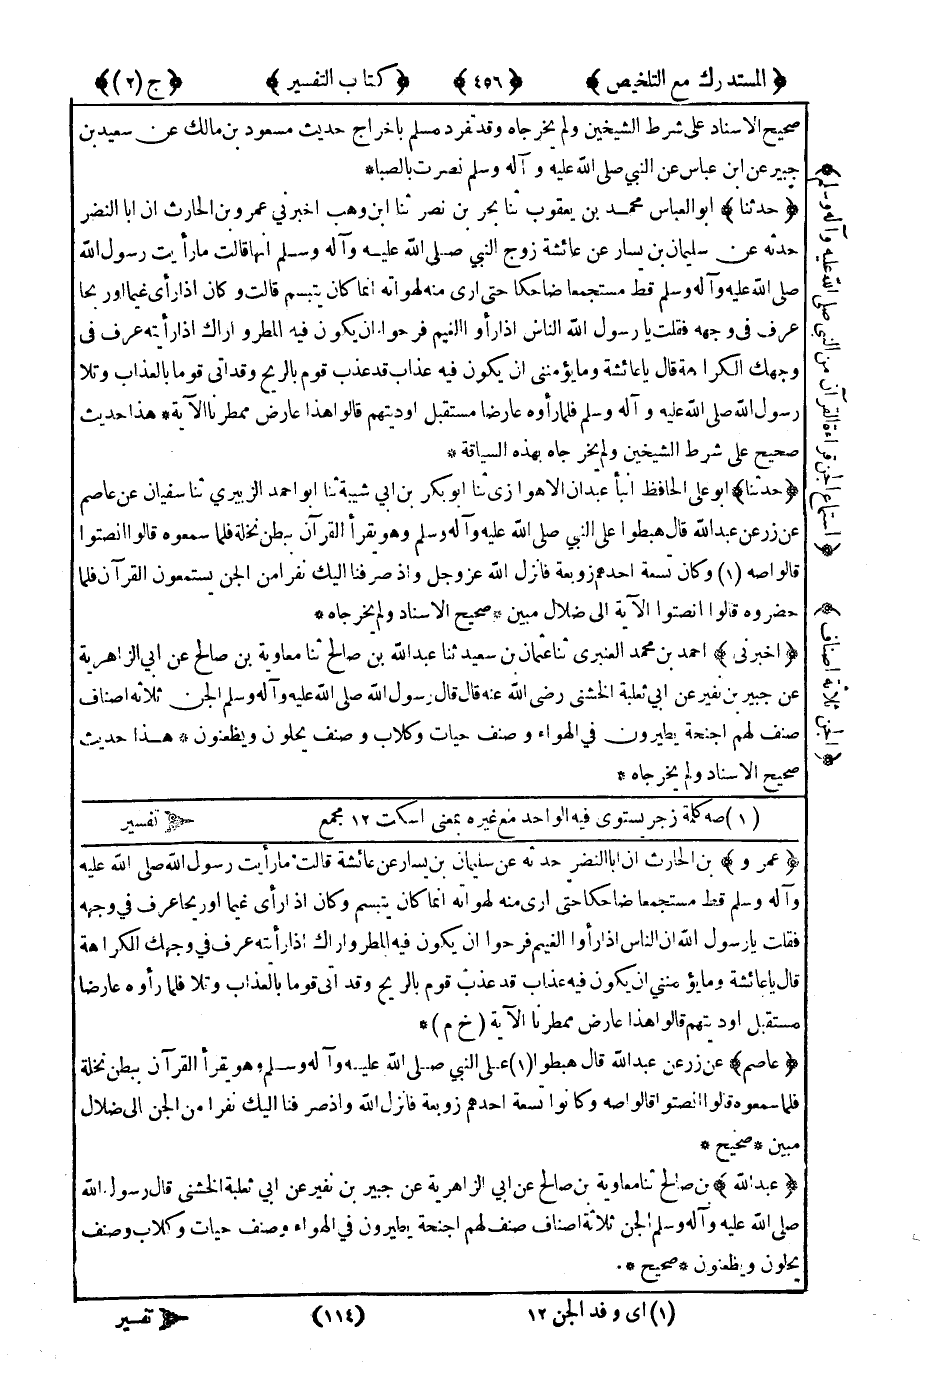 ﴿ المستدرك مع التلخيص ﴾ ﴿ ٤٥٦ ﴾ ﴿ كتاب التفسير ﴾ ﴿ ج (٢) ﴾
صحيح الاسناد على شرط الشيخين ولم يخرجاه وقد تفرد مسلم باخراج حديث مسعود بن مالك عن سعيد بن
جبير عن ابن عباس عن النبي صلى الله عليه و آله وسلم نصرت بالصبا*
﴿ حدثنا ﴾ ابو العباس محمد بن يعقوب ثنا بحر بن نصر ثنا ابن وهب اخبرني عمرو بن الحارث ان ابا النضر
حدثه عن سليمان بن يسار عن عائشة زوج النبي صلى الله عليه وآله وسلم انها قالت ما رأيت رسول الله
صلى الله عليه وآله وسلم قط مستجمعا ضاحكا حتى ارى منه لهواته انما كان يتبسم قالت و كان اذا رأى غيما او ريحا
عرف فى وجهه فقلت يا رسول الله الناس اذا رأوا الغيم فرحوا ان يكون فيه المطر و اراك اذا رأيته عرف فى
وجهك الكراهة قال يا عائشة وما يؤمننى ان يكون فيه عذاب قد عذب قوم بالريح وقد اتى قوما بالعذاب وتلا
رسول الله صلى الله عليه و آله وسلم فلما رأوه عارضا مستقبل اوديتهم قالوا هذا عارض ممطرنا الآية* هذا حديث
صحيح على شرط الشيخين ولم يخرجاه بهذه السياقة *
﴿ حدثنا ﴾ ابو على الحافظ انبأ عبدان الاهوازى ثنا ابو بكر بن ابي شيبة ثنا ابو احمد الزبيري ثنا سفيان عن عاصم
عن زر عن عبد الله قال هبطوا على النبي صلى الله عليه وآله وسلم وهو يقرأ القرآن ببطن نخلة فلما سمعوه قالوا انصتوا
قالوا صه (١) وكان تسعة احدهم زوبعة فانزل الله عز وجل واذ صرفنا اليك نفرا من الجن يستمعون القرآن فلما
حضروه قالوا انصتوا الآية الى ضلال مبين * صحيح الاسناد ولم يخرجاه *
﴿ اخبرنى ﴾ احمد بن محمد العنبرى ثنا عثمان بن سعيد ثنا عبد الله بن صالح ثنا معاوية بن صالح عن ابي الزاهرية
عن جبير بن نفير عن ابي ثعلبة الخشنى رضى الله عنه قال قال رسول الله صلى الله عليه وآله وسلم الجن ثلاثة اصناف
صنف لهم اجنحة يطيرون في الهواء و صنف حيات وكلاب و صنف يحلون ويظعنون * هذا حديث
صحيح الاسناد ولم يخرجاه *
﴿ استماع الجن قراءة القرآن من النبي صلى الله عليه وآله وسلم ﴾
﴿ الجن ثلاثة اصناف ﴾
(١) صه كلمة زجر يستوى فيه الواحد مع غيره بمعنى اسكت ١٢ مجمع تفسير
﴿ عمرو ﴾ بن الحارث ان ابا النضر حدثه عن سليمان بن يسار عن عائشة قالت ما رأيت رسول الله صلى الله عليه
وآله وسلم قط مستجمعا ضاحكا حتى ارى منه لهواته انما كان يتبسم وكان اذا رأى غيما او ريحا عرف في وجهه
فقلت يا رسول الله ان الناس اذا رأوا الغيم فرحوا ان يكون فيه المطر واراك اذا رأيته عرف في وجهك الكراهة
قال يا عائشة وما يؤمننى ان يكون فيه عذاب قد عذب قوم بالريح وقد اتى قوما بالعذاب وتلا فلما رأوه عارضا
مستقبل اوديتهم قالوا هذا عارض ممطرنا الآية (خ م) *
﴿ عاصم ﴾ عن زر عن عبد الله قال هبطوا (١) على النبي صلى الله عليه وآله وسلم وهو يقرأ القرآن ببطن نخلة
فلما سمعوه قالوا انصتوا قالوا صه وكانوا تسعة احدهم زوبعة فانزل الله واذ صرفنا اليك نفرا من الجن الى ضلال
مبين * صحيح *
﴿ عبد الله ﴾ بن صالح ثنا معاوية بن صالح عن ابي الزاهرية عن جبير بن نفير عن ابي ثعلبة الخشنى قال رسول الله
صلى الله عليه وآله وسلم الجن ثلاثة اصناف صنف لهم اجنحة يطيرون في الهواء وصنف حيات وكلاب وصنف
يحلون ويظعنون * صحيح *
(١) اى وفد الجن ١٢ (١١٤) تفسير